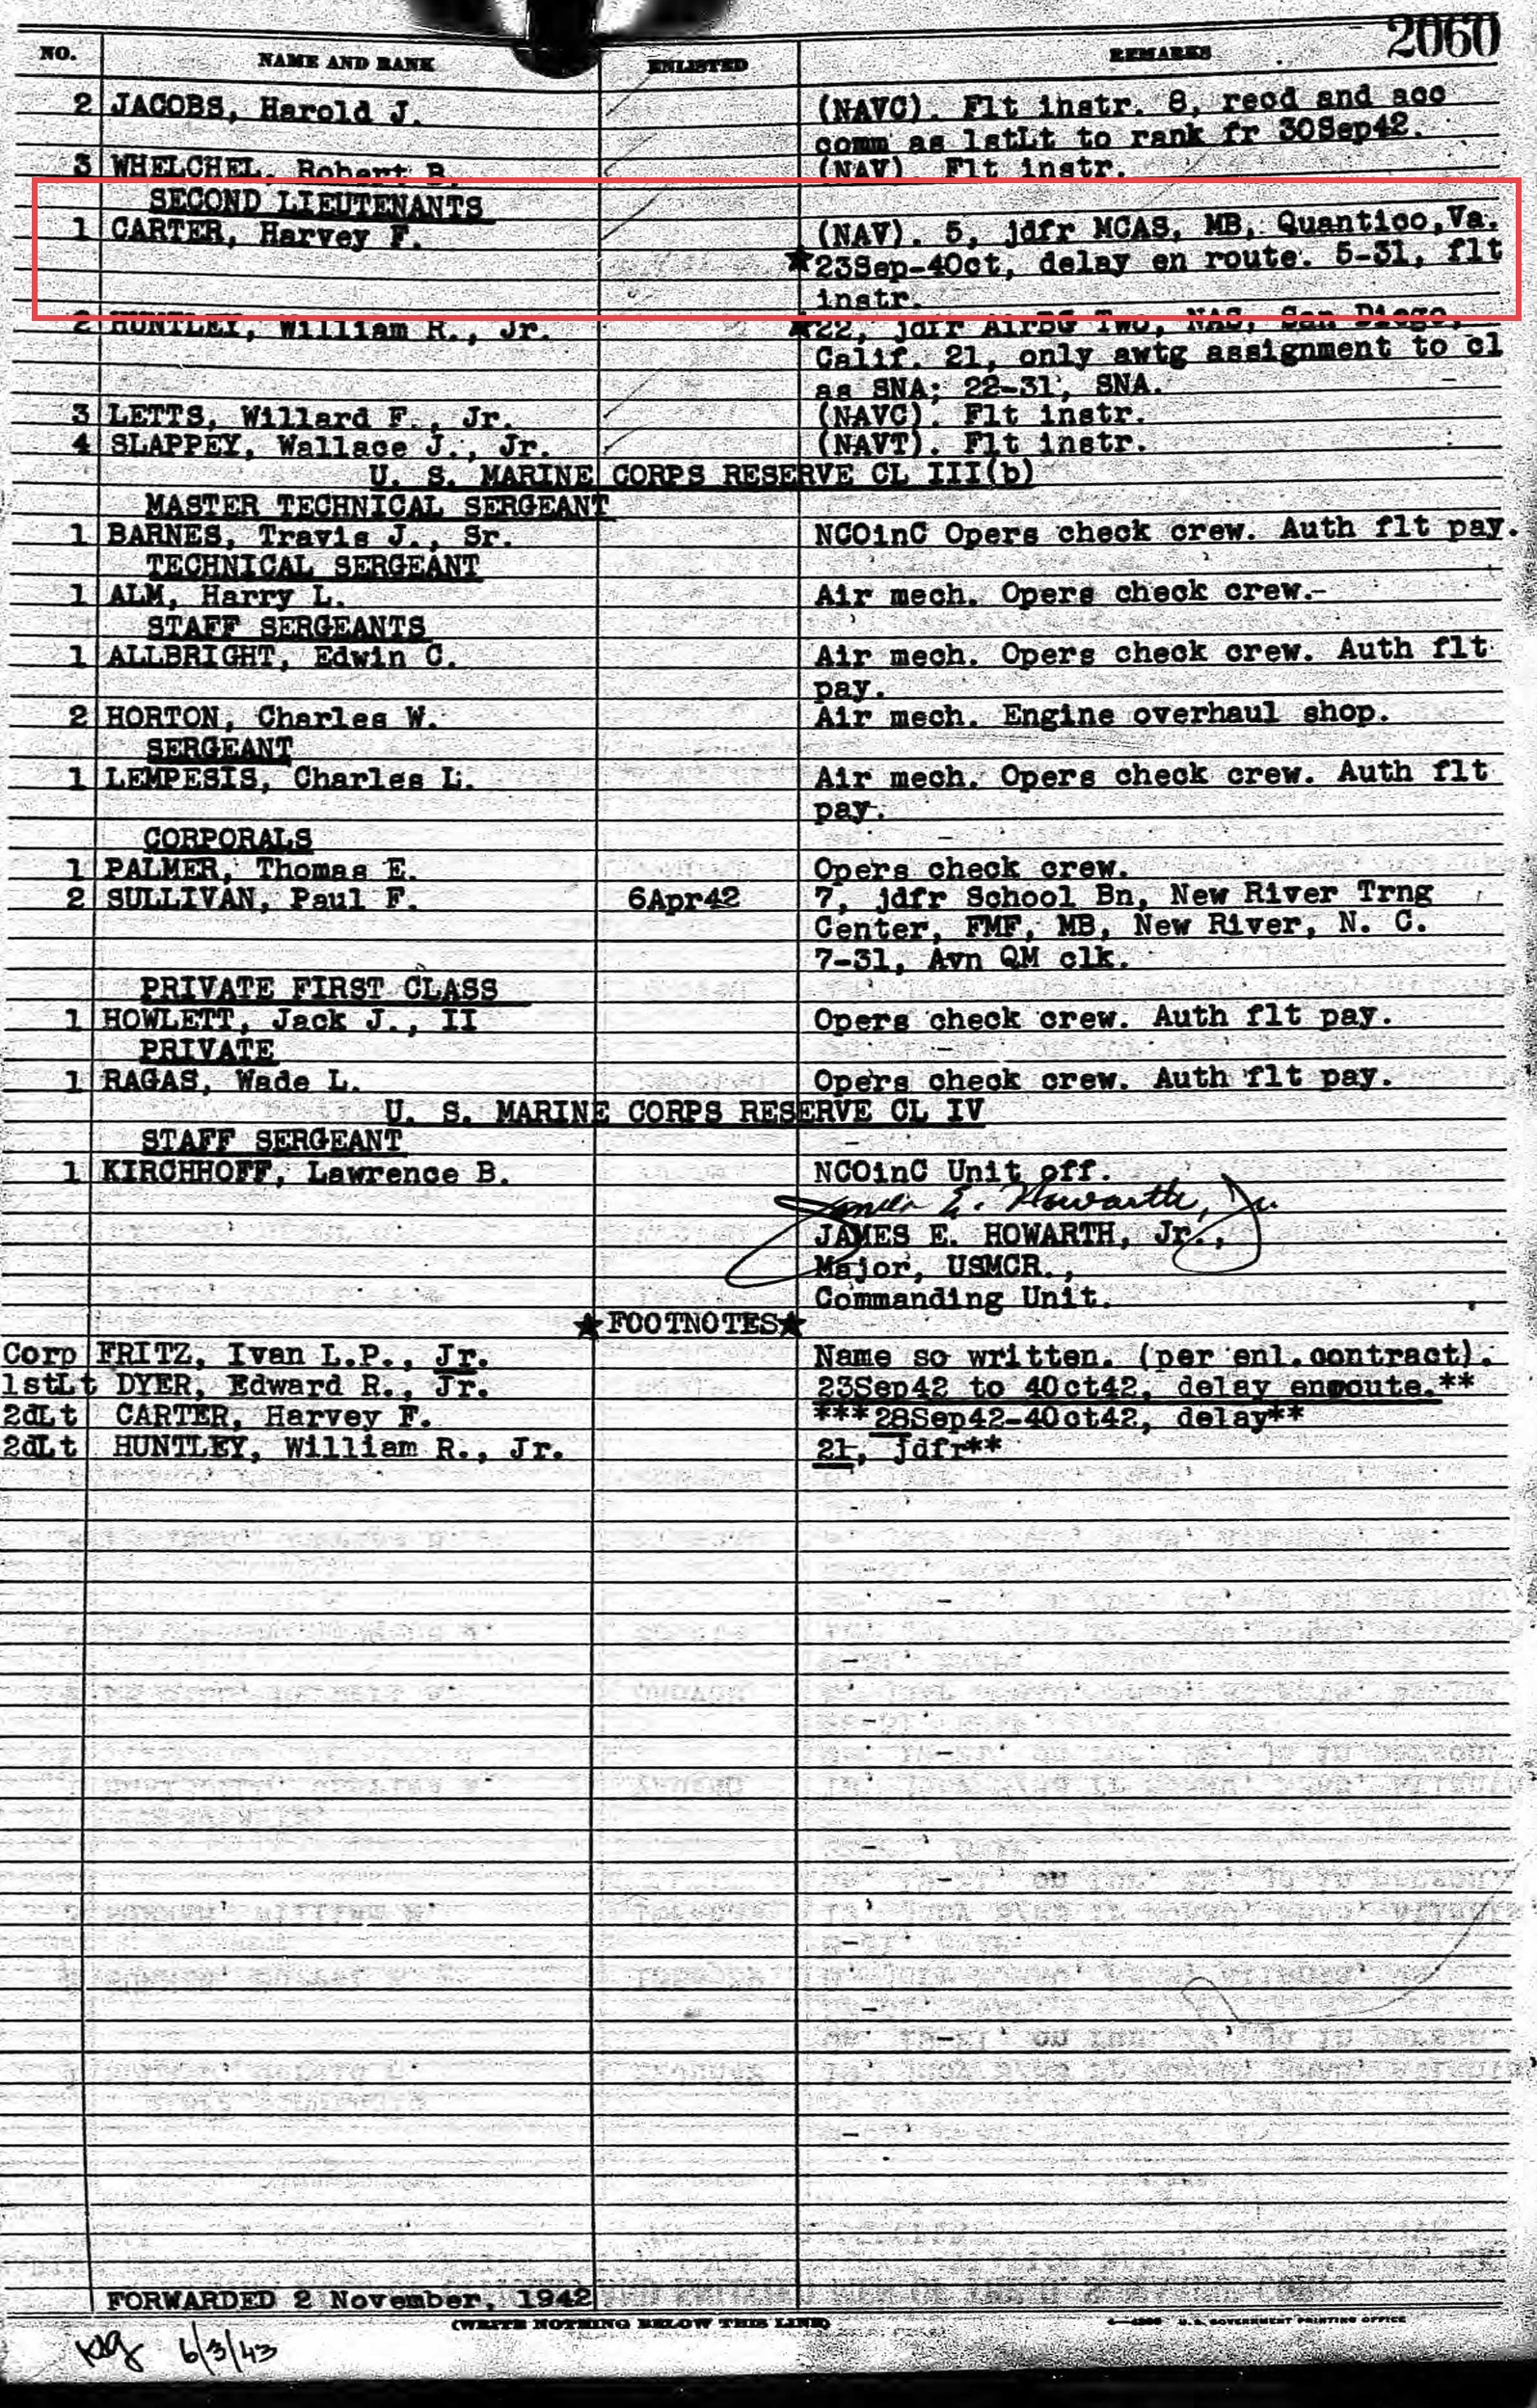 2060
NO. NAME AND RANK ENLISTED REMARKS
2 JACOBS, Harold J. (NAVC). Flt instr. 8, recd and acc
comm as 1stLt to rank fr 30Sep42.
3 WHELCHEL, Robert B. (NAV). Flt instr.
SECOND LIEUTENANTS
1 CARTER, Harvey F. (NAV). 5, jdfr MCAS, MB, Quantico,Va.
★23Sep-4Oct, delay en route. 5-31, flt
instr.
2 HUNTLEY, William R., Jr. ★22, jdfr AirBG Two, NAS, San Diego,
Calif. 21, only awtg assignment to cl
as SNA; 22-31, SNA.
3 LETTS, Willard F., Jr. (NAVC). Flt instr.
4 SLAPPEY, Wallace J., Jr. (NAVT). Flt instr.
U. S. MARINE CORPS RESERVE CL III(b)
MASTER TECHNICAL SERGEANT
1 BARNES, Travis J., Sr. NCOinC Opers check crew. Auth flt pay.
TECHNICAL SERGEANT
1 ALM, Harry L. Air mech. Opers check crew.
STAFF SERGEANTS
1 ALLBRIGHT, Edwin C. Air mech. Opers check crew. Auth flt
pay.
2 HORTON, Charles W. Air mech. Engine overhaul shop.
SERGEANT
1 LEMPESIS, Charles L. Air mech. Opers check crew. Auth flt
pay.
CORPORALS
1 PALMER, Thomas E. Opers check crew.
2 SULLIVAN, Paul F. 6Apr42 7, jdfr School Bn, New River Trng
Center, FMF, MB, New River, N. C.
7-31, Avn QM clk.
PRIVATE FIRST CLASS
1 HOWLETT, Jack J., II Opers check crew. Auth flt pay.
PRIVATE
1 RAGAS, Wade L. Opers check crew. Auth flt pay.
U. S. MARINE CORPS RESERVE CL IV
STAFF SERGEANT
1 KIRCHHOFF, Lawrence B. NCOinC Unit off.
James E. Howarth, Jr.
JAMES E. HOWARTH, Jr.,
Major, USMCR.,
Commanding Unit.
★FOOTNOTES★
Corp FRITZ, Ivan L.P., Jr. Name so written. (per enl.contract).
1stLt DYER, Edward R., Jr. 23Sep42 to 4Oct42, delay enroute.**
2dLt CARTER, Harvey F. ***28Sep42-4Oct42, delay**
2dLt HUNTLEY, William R., Jr. 21, jdfr**
FORWARDED 2 November, 1942
(WRITE NOTHING BELOW THIS LINE) U. S. GOVERNMENT PRINTING OFFICE
6/3/43